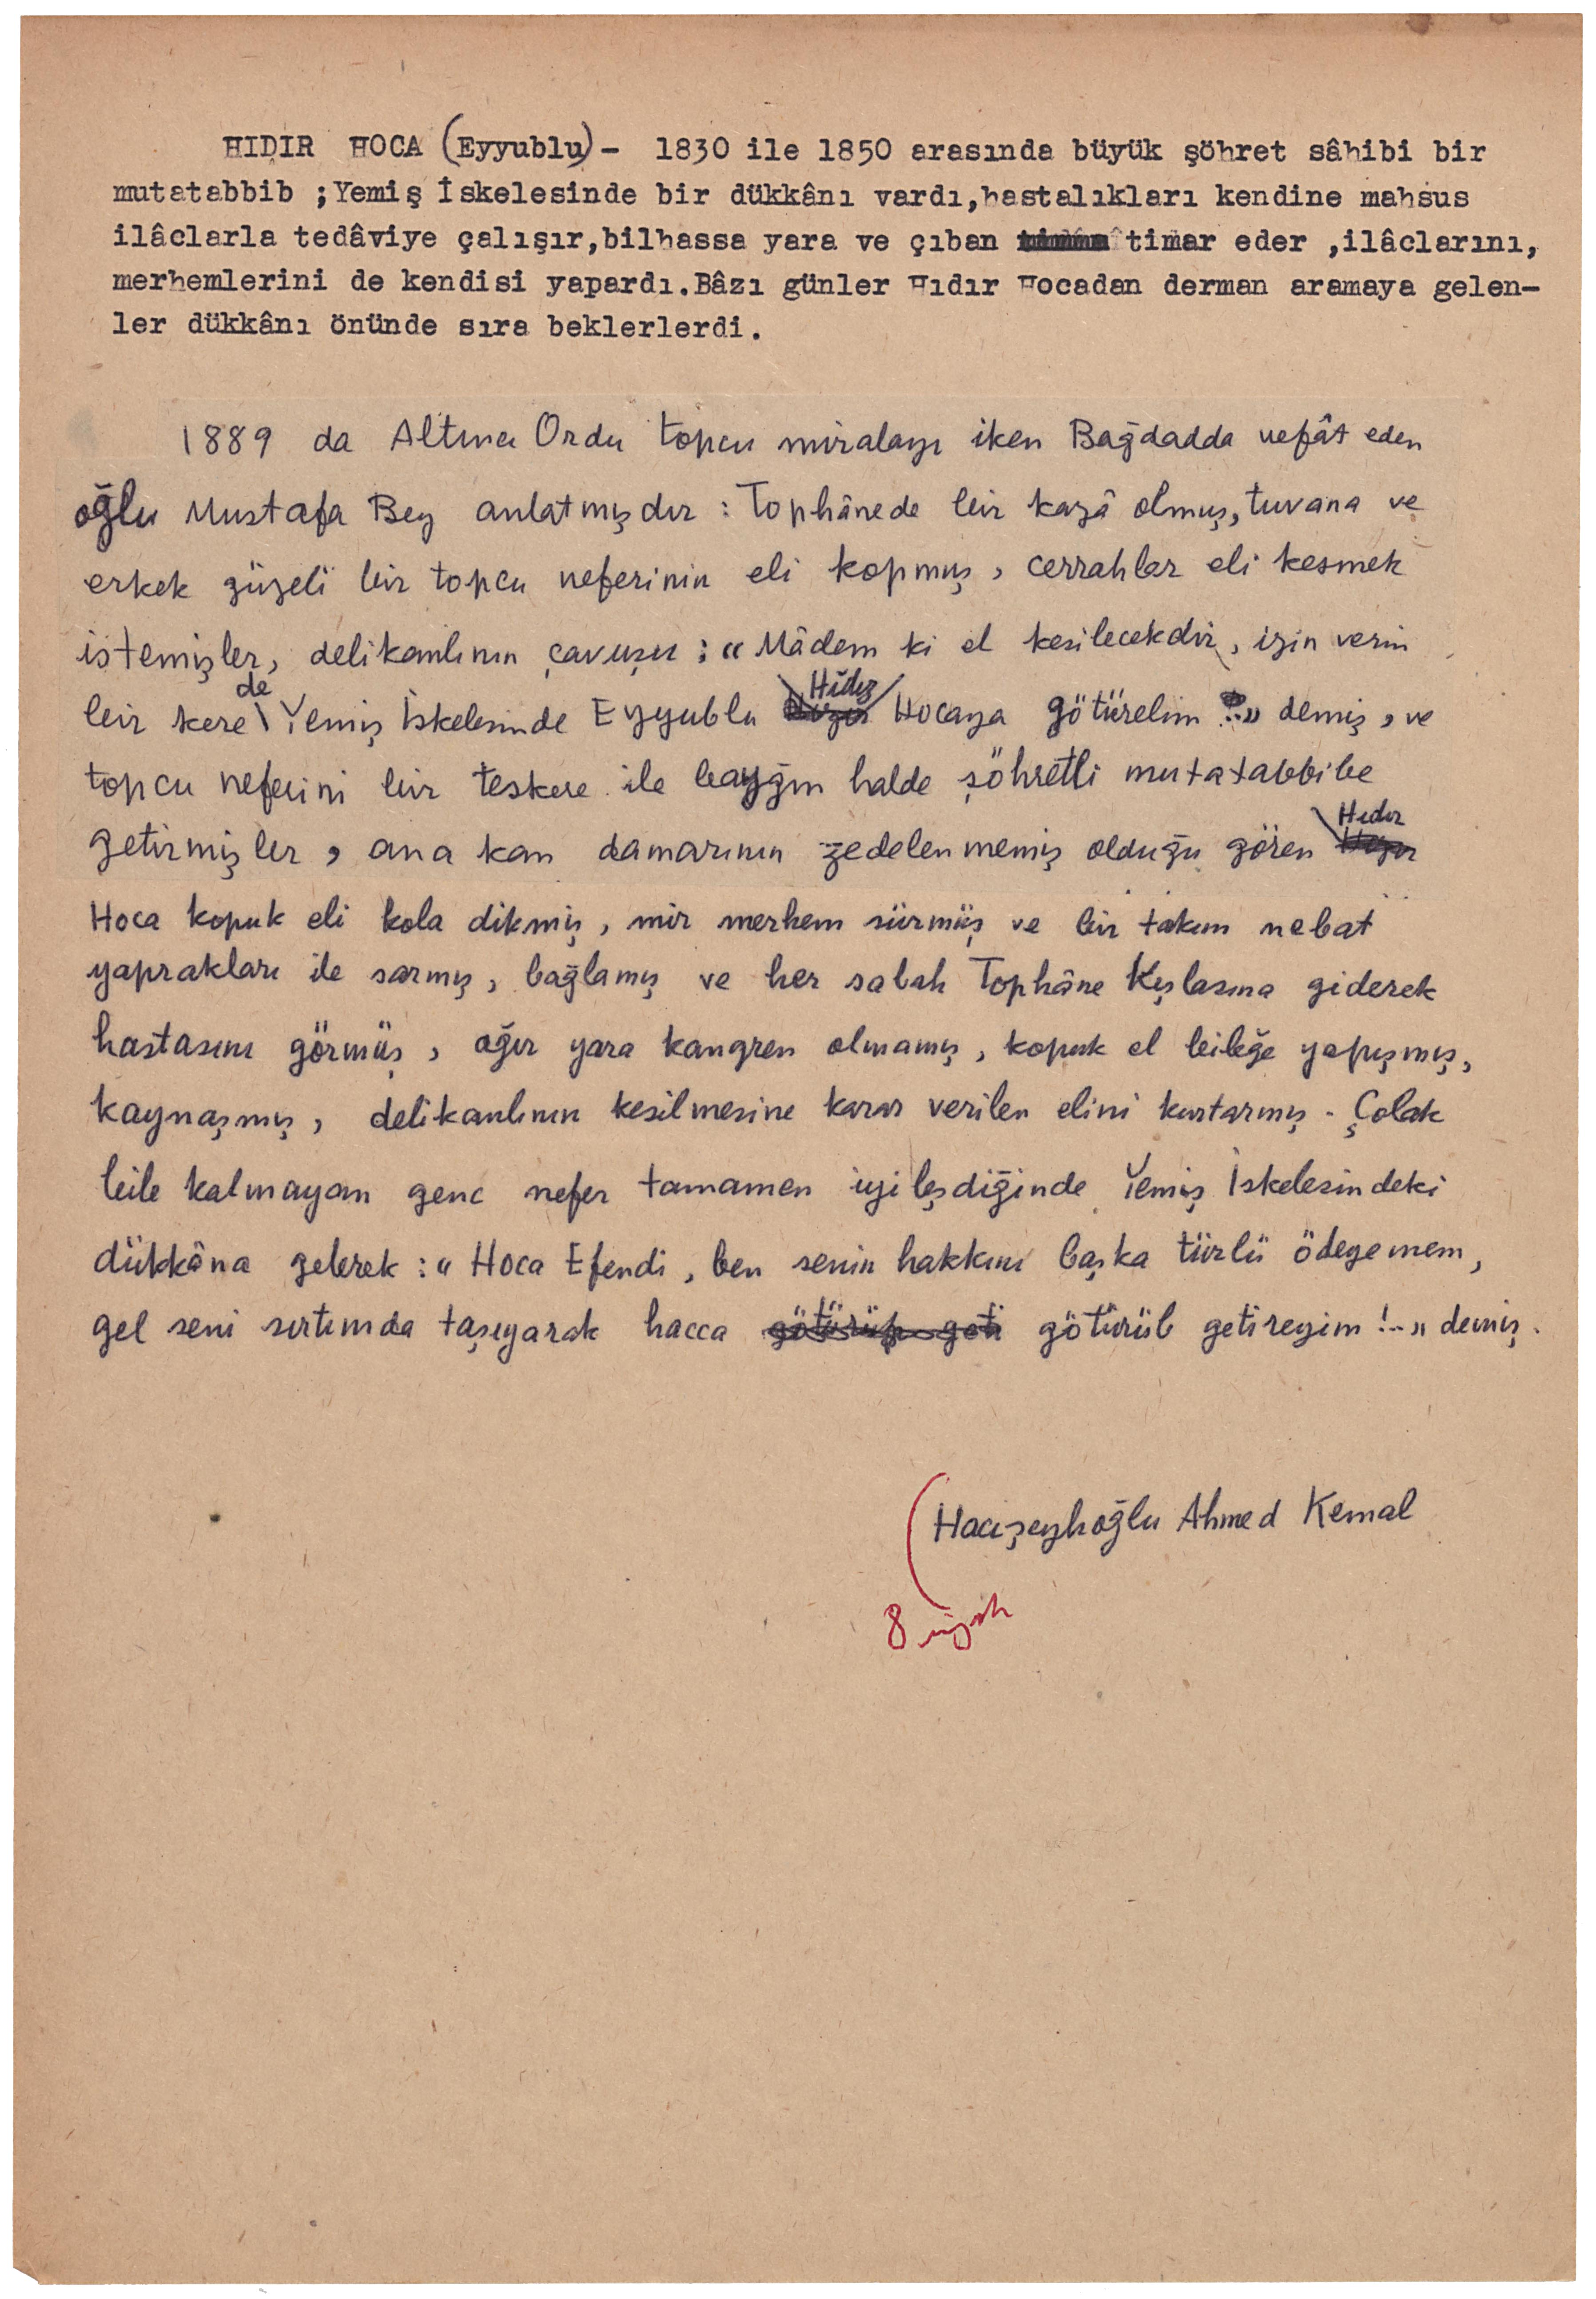 HIDIR HOCA (Eyyublu)- 1830 ile 1850 arasında büyük şöhret sâhibi bir
mutatabbib ;Yemiş İskelesinde bir dükkânı vardı,hastalıkları kendine mahsus
ilâclarla tedâviye çalışır,bilhassa yara ve çıban timar eder ,ilâclarını,
merhemlerini de kendisi yapardı.Bâzı günler Hıdır Hocadan derman aramaya gelen-
ler dükkânı önünde sıra beklerlerdi.
1889 da Altıncı Ordu topcu miralayı iken Bağdadda vefât eden
oğlu Mustafa Bey anlatmışdır : Tophânede bir kazâ olmuş, tuvana ve
erkek güzeli bir topcu neferinin eli kopmuş, cerrahlar eli kesmek
istemişler, delikanlının çavuşu : "Mâdem ki el kesilecekdir, izin verin
bir kere de Yemiş İskelesinde Eyyublu Hıdır Hocaya götürelim ..." demiş, ve
topcu neferini bir teskere ile baygın halde şöhretli mutatabbibe
getirmişler, ana kan damarının zedelenmemiş olduğu gören Hıdır
Hoca kopuk eli kola dikmiş, mir merhem sürmüş ve bir takım nebat
yaprakları ile sarmış, bağlamış ve her sabah Tophâne Kışlasına giderek
hastasını görmüş, ağır yara kangren olmamış, kopuk el bileğe yapışmış,
kaynaşmış, delikanlının kesilmesine karar verilen elini kurtarmış. Çolak
bile kalmayan genc nefer tamamen iyileşdiğinde Yemiş İskelesindeki
dükkâna gelerek : "Hoca Efendi, ben senin hakkını başka türlü ödeyemem,
gel seni sırtımda taşıyarak hacca götürüp geti götürüb getireyim !.." demiş.
Hacışeyhoğlu Ahmed Kemal
8